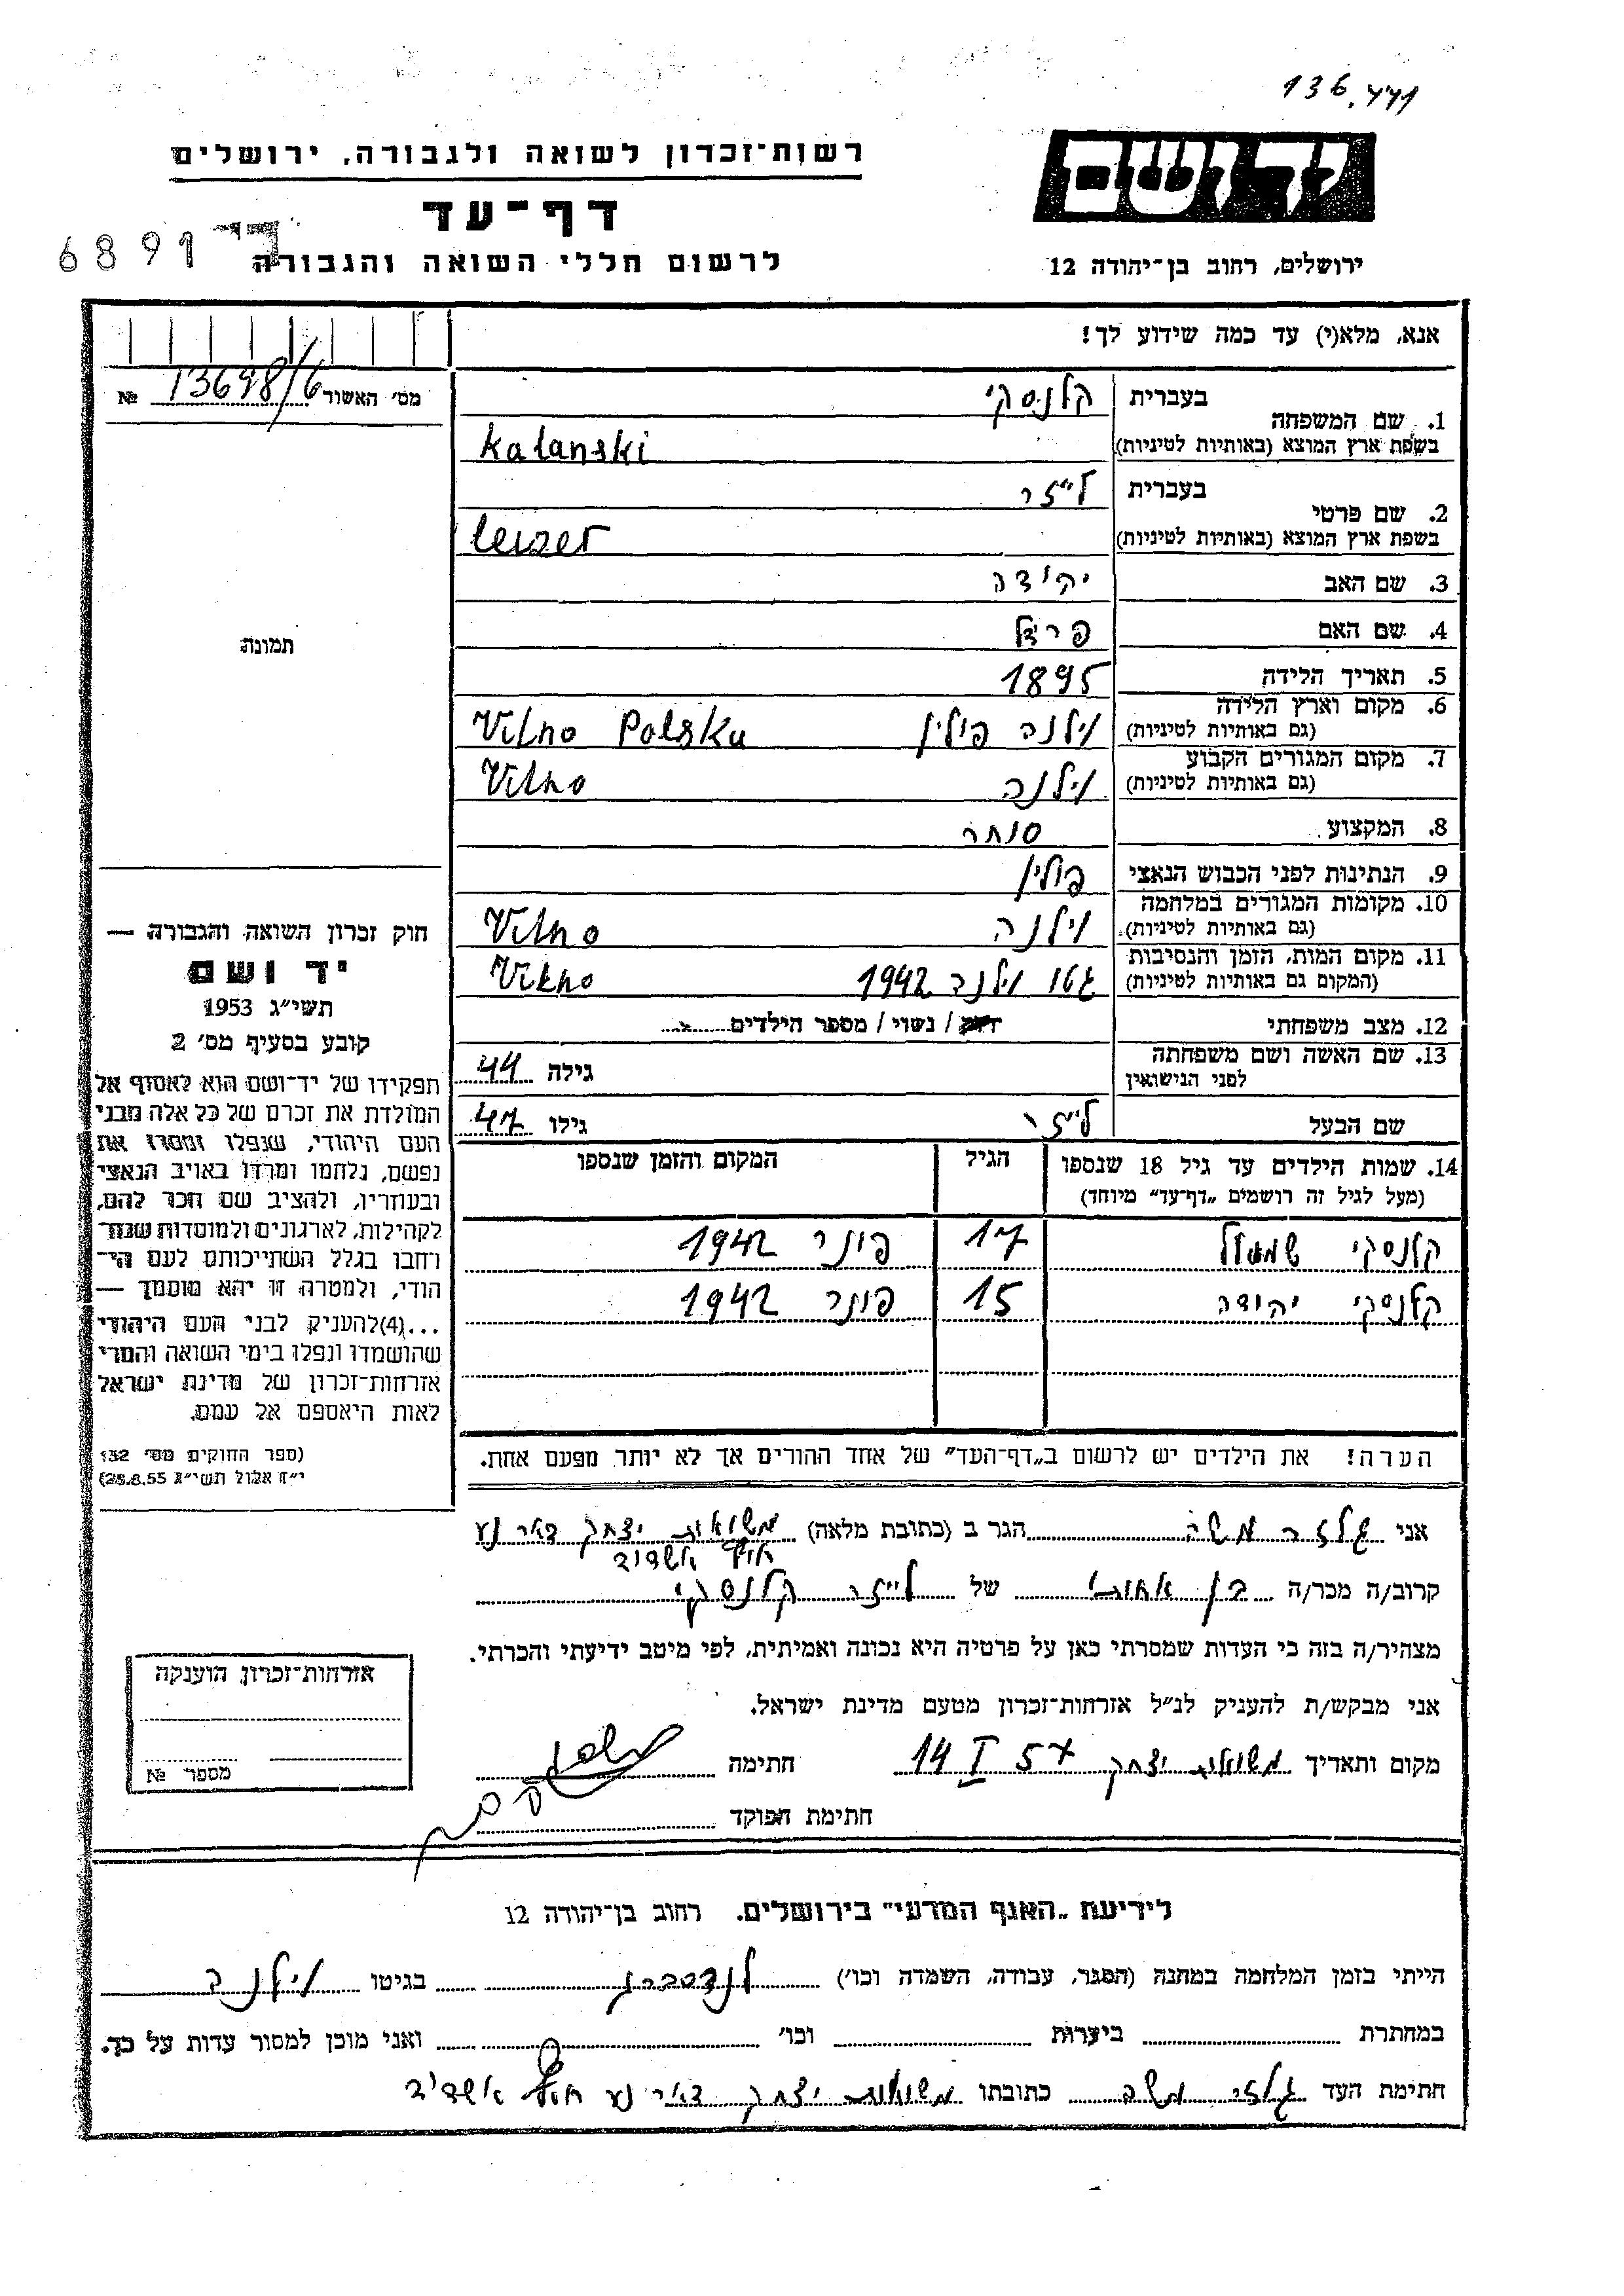 136.441
רשות־זכרון לשואה ולגבורה, ירושלים
יד ושם
דף־עד
6891
לרשום חללי השואה והגבורה
ירושלים, רחוב בן־יהודה 12
אנא, מלא(י) עד כמה שידוע לך!
מס׳ האשור 13698/6 №
1. שם המשפחה
בעברית קלנסקי
בשפת ארץ המוצא (באותיות לטיניות) Kalanski
2. שם פרטי
בעברית לייזר
בשפת ארץ המוצא (באותיות לטיניות) Leuzer
3. שם האב יהודה
4. שם האם
5. תאריך הלידה 1895
6. מקום וארץ הלידה
(גם באותיות לטיניות) וילנה פולין Vilno Polska
7. מקום המגורים הקבוע
(גם באותיות לטיניות) וילנה Vilno
8. המקצוע סוחר
9. הנתינות לפני הכבוש הנאצי פולין
10. מקומות המגורים במלחמה
(גם באותיות לטיניות) וילנה Vilno
11. מקום המות, הזמן והנסיבות
(המקום גם באותיות לטיניות) גטו וילנה 1942 Vilno
12. מצב משפחתי רווק / נשוי / מספר הילדים
13. שם האשה ושם משפחתה
לפני הנישואין גילה 44
שם הבעל לייזר גילו 47
14. שמות הילדים עד גיל 18 שנספו הגיל המקום והזמן שנספו
(מעל לגיל זה רושמים „דף־עד״ מיוחד)
קלנסקי שמואל 17 פונר 1942
קלנסקי יהודה 15 פונר 1942
הערה! את הילדים יש לרשום ב„דף־העד״ של אחד ההורים אך לא יותר מפעם אחת.
תמונה
חוק זכרון השואה והגבורה —
יד ושם
תשי״ג 1953
קובע בסעיף מס׳ 2
תפקידו של יד־ושם הוא לאסוף אל
המולדת את זכרם של כל אלה מבני
העם היהודי, שנפלו ומסרו את
נפשם, נלחמו ומרדו באויב הנאצי
ובעוזריו, ולהציב שם וזכר להם,
לקהילות, לארגונים ולמוסדות שנח־
רבו בגלל השתייכותם לעם הי־
הודי, ולמטרה זו יהא מוסמך —
...(4)להעניק לבני העם היהודי
שהושמדו ונפלו בימי השואה והמרי
אזרחות־זכרון של מדינת ישראל
לאות היאספם אל עמם.
(ספר החוקים מס׳ 132
י״ז אלול תשי״ג 28.8.55)
אני גלזר משה הגר ב (כתובת מלאה) משואות יצחק דאר נע
חוף אשדוד
קרוב/ה מכר/ה בן אחות של לייזר קלנסקי
מצהיר/ה בזה כי העדות שמסרתי כאן על פרטיה היא נכונה ואמיתית, לפי מיטב ידיעתי והכרתי.
אני מבקש/ת להעניק לנ״ל אזרחות־זכרון מטעם מדינת ישראל.
מקום ותאריך משואות יצחק 14 I 57 חתימה
חתימת הפוקד
אזרחות־זכרון הוענקה
מספר №
לידיעת „האגף המדעי״ בירושלים, רחוב בן־יהודה 12
הייתי בזמן המלחמה במחנה (הסגר, עבודה, השמדה וכו׳) לנדסברג בגיטו וילנה
במחתרת ביערות וכו׳ ואני מוכן למסור עדות על כך.
חתימת העד גלזר משה כתובתו משואות יצחק דאר נע חוף אשדוד